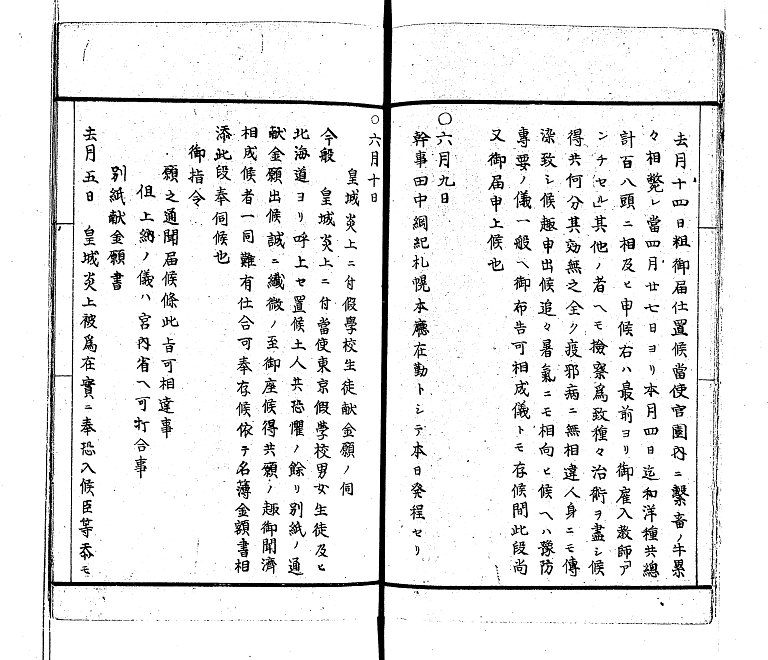 去月十四日粗御届仕置候當使官園内ニ繋畜ノ牛累
々相斃レ當四月廿七日ヨリ本月四日迄和洋種共總
計百八頭ニ相及ヒ申候右ハ最前ヨリ御雇入教師ア
ンチセル其他ノ者ヘモ撿察爲致種々治術ヲ盡シ候
得共何分其効無之全ク疫邪病ニ無相違人身ニモ傳
染致シ候趣申出候追々暑氣ニモ相向ヒ候ヘハ豫防
專要ノ儀一般ヘ御布告可相成儀トモ存候間此段尚
又御届申上候也
〇六月九日
幹事田中綱紀札幌本廳在勤トシテ本日発程セリ
〇六月十日
皇城炎上ニ付假學校生徒献金願ノ伺
今般 皇城炎上ニ付當使東京假學校男女生徒及ヒ
北海道ヨリ呼上セ置候土人共恐懼ノ餘リ別紙ノ通
献金願出候誠ニ纎微ノ至御座候得共願ノ趣御聞濟
相成候者一同難有仕合可奉存候依テ名簿金額書相
添此段奉伺候也
御指令
願之通聞届候條此旨可相達事
但上納ノ儀ハ宮内省ヘ可打合事
別紙献金願書
去月五日 皇城炎上被爲在實ニ奉恐入候臣等忝モ